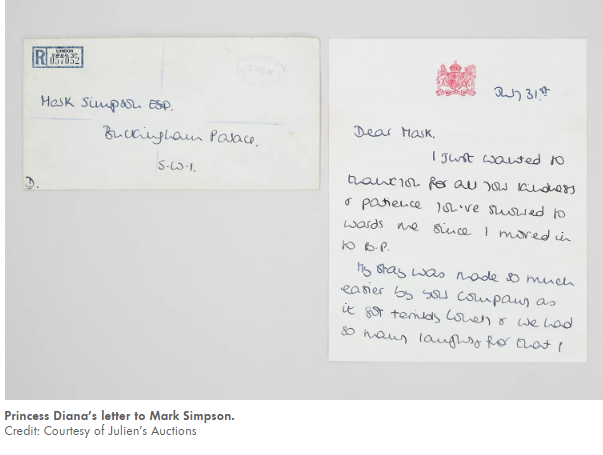 R
LONDON
057052
Mark Simpson ESQ.
Buckingham Palace.
S.W.1.
D.
July 31st
Dear Mark.
I just wanted to
thank you for all your kindness
& patience you've showed to
wards me since I moved in
to B.P.
My stay was made so much
easier by your company as
it got terribly lonely & we had
so many laughs, for that I
Princess Diana's letter to Mark Simpson.
Credit: Courtesy of Julien's Auctions